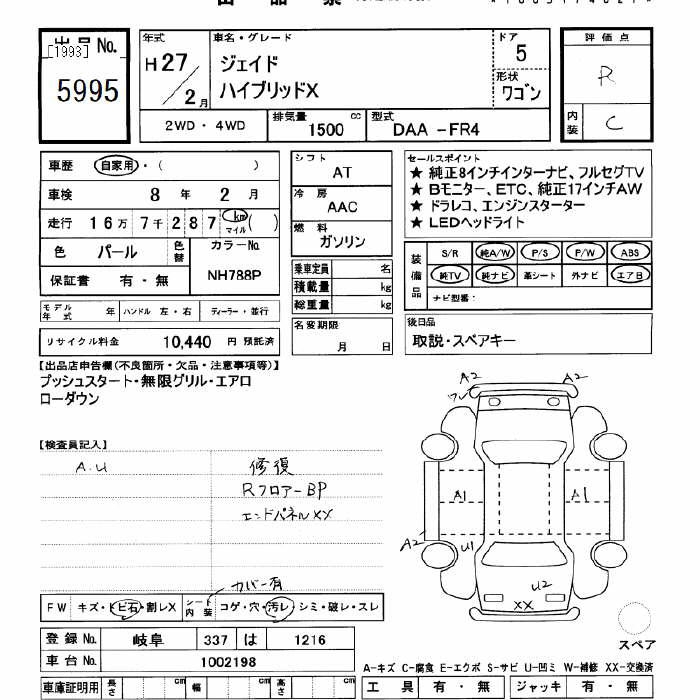 出品票
出品No.
[1993]
5995
年式
H27/2月
車名・グレード
ジェイド
ハイブリッドX
ドア
5
形状
ワゴン
評価点
R
内装
C
2WD・4WD
排気量
1500 cc
型式
DAA -FR4
車歴 自家用・( )
車検 8 年 2 月
走行 16万 7千 2 8 7 km マイル ( )
色 パール 色替 カラーNo.
NH788P
保証書 有・無
モデル年式 年 ハンドル 左・右 ディーラー・並行
リサイクル料金 10,440 円 預託済
シフト
AT
冷房
AAC
燃料
ガソリン
乗車定員 名
積載量 kg
総重量 kg
名変期限
月 日
セールスポイント
★ 純正8インチインターナビ、フルセグTV
★ Bモニター、ETC、純正17インチAW
★ ドラレコ、エンジンスターター
★ LEDヘッドライト
装備品
S/R 純A/W P/S P/W ABS
純TV 純ナビ 革シート 外ナビ エアB
ナビ型番:
後日品
取説・スペアキー
【出品店申告欄(不良箇所・欠品・注意事項等)】
プッシュスタート・無限グリル・エアロ
ローダウン
【検査員記入】
A.U
修復
Rフロアー BP
エンドパネルXX
カバー有
FW キズ・トビ石・割レX シート内装 コゲ・穴・汚レ・シミ・破レ・スレ
登録No. 岐阜 337 は 1216
車台No. 1002198
車庫証明用 長さ cm 幅 cm 高さ cm
A2 A2
A1 A1
A2 U1
U2
XX
スペア
A-キズ C-腐食 E-エクボ S-サビ U-凹ミ W-補修 XX-交換済
工具 有・無 ジャッキ 有・無